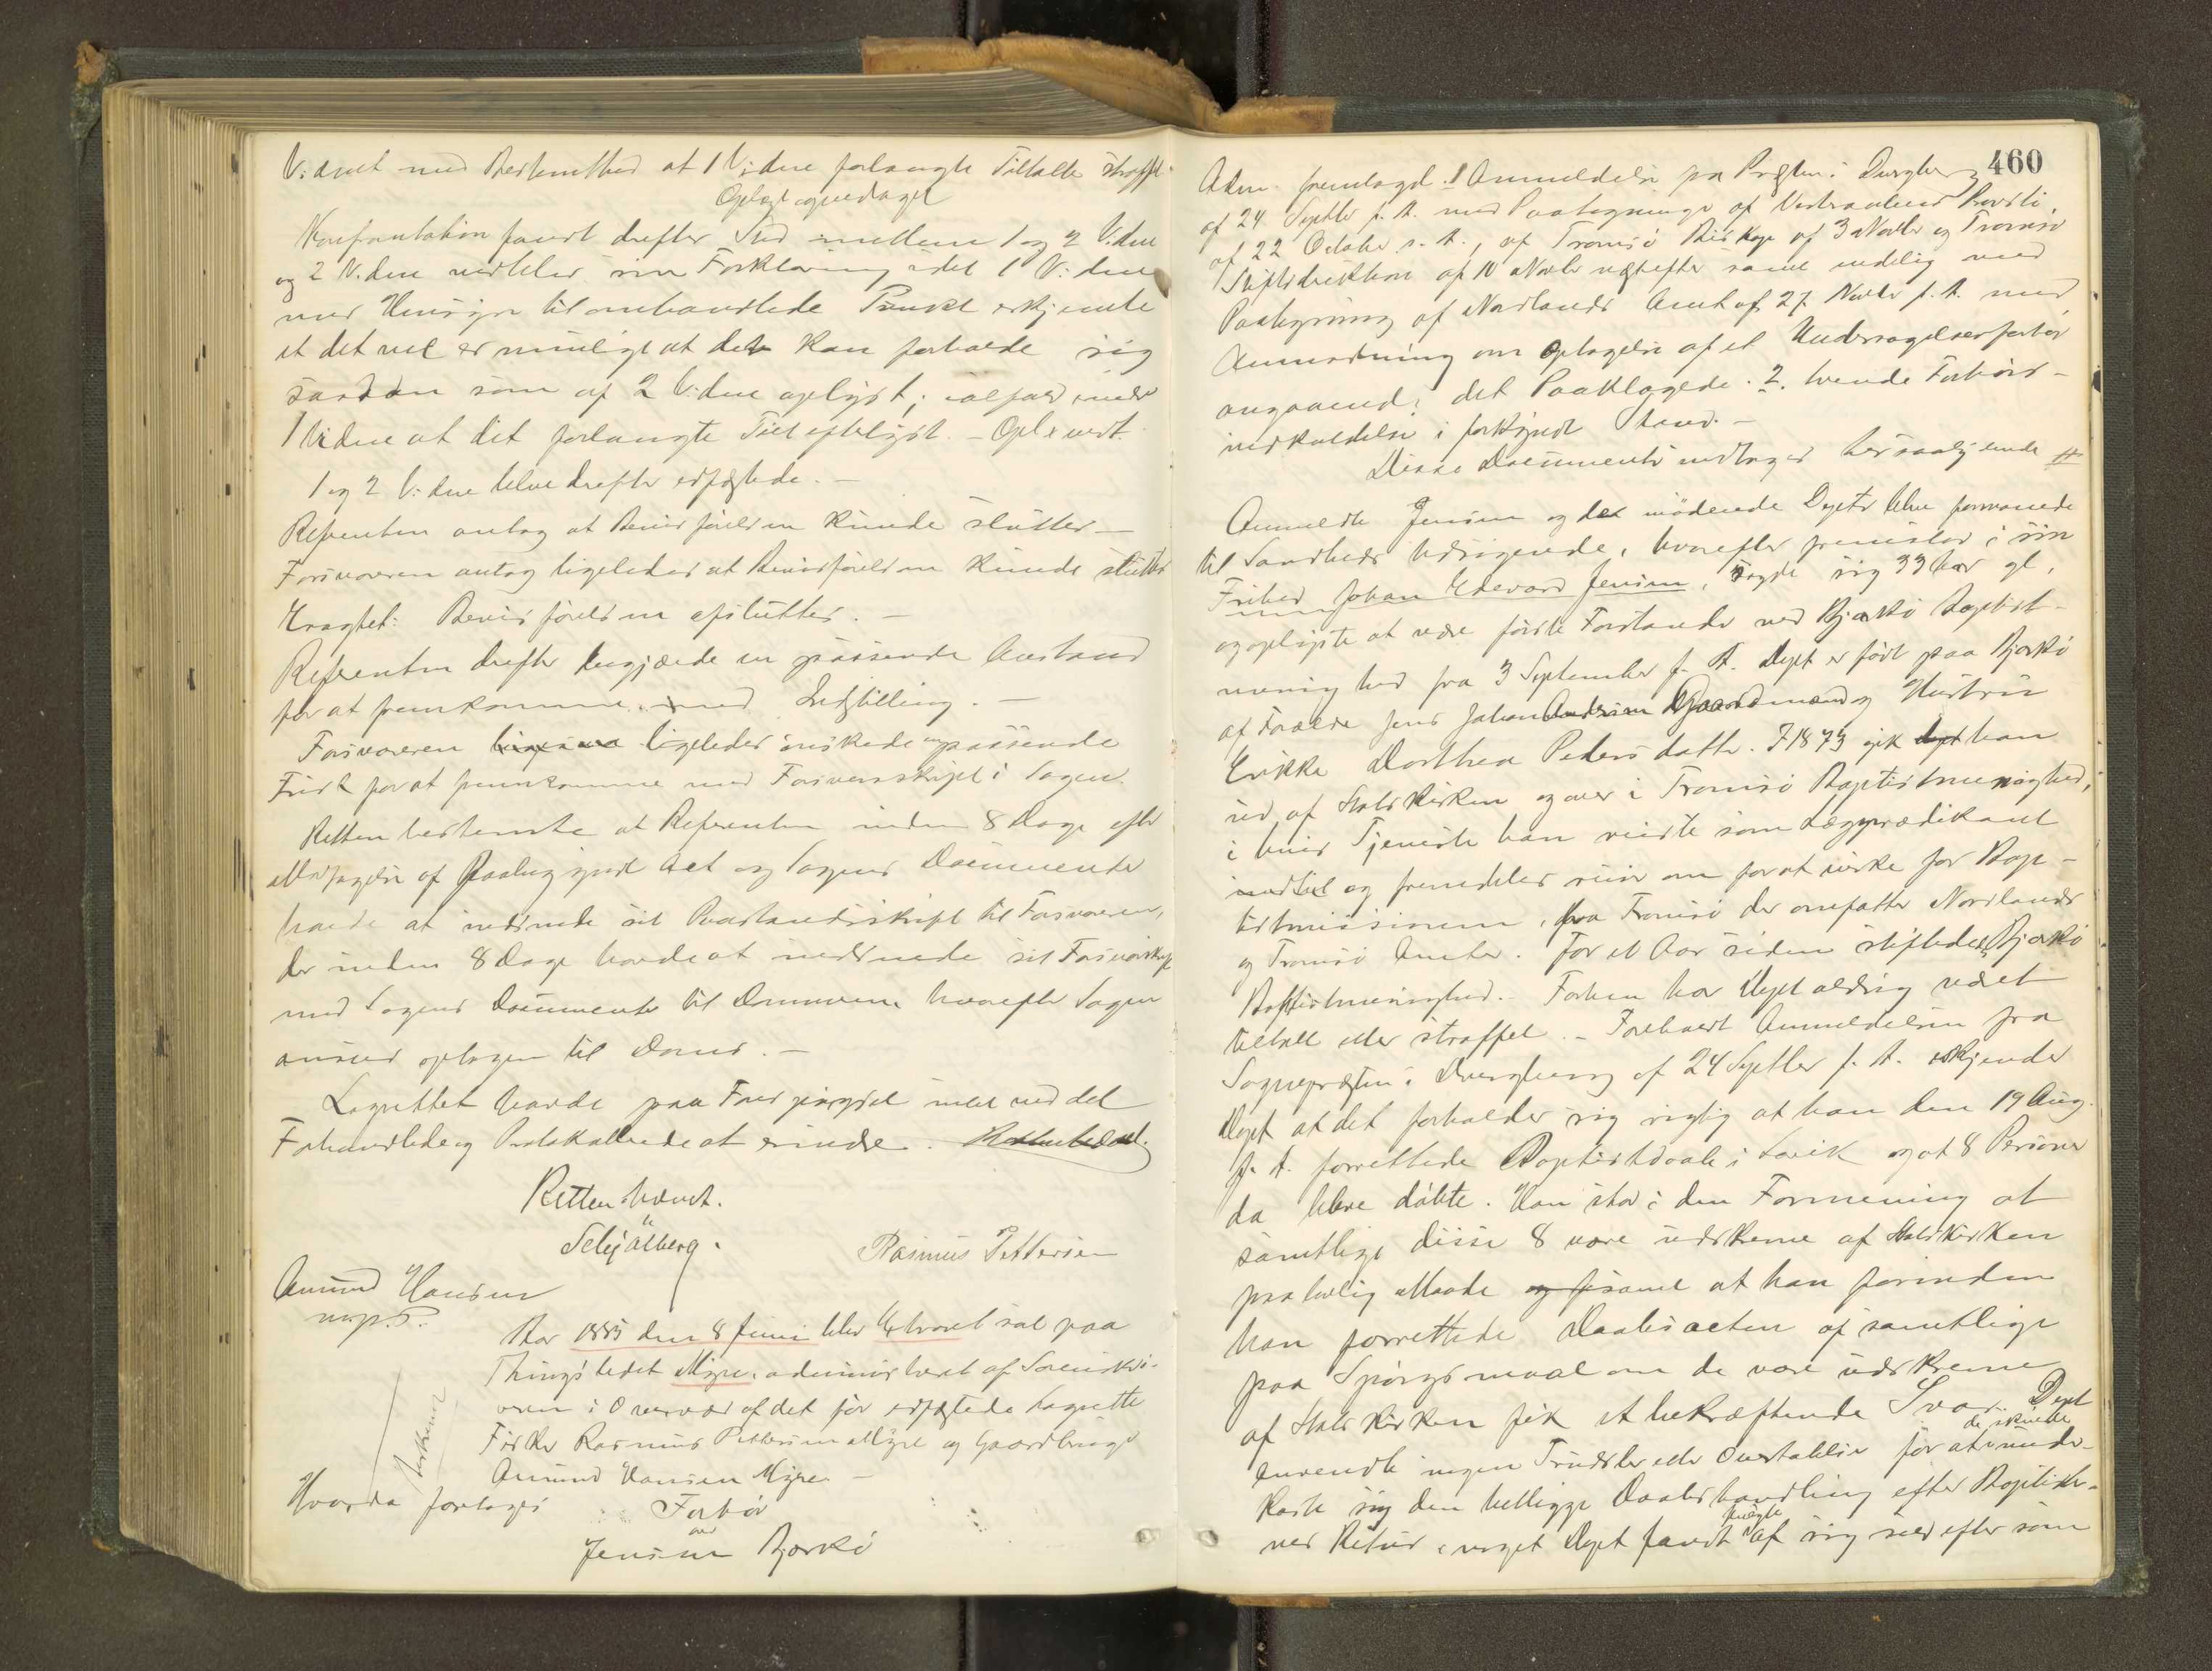 Vidnet med Bestemthed at 1 Vidne forlangte Tiltalte straffet.
Oplæst og vedtaget
Konfrontation fandt derefter Sted mellem 1 og 2 Vidne
og 2 Vidne vedblev sin Forklaring idet 1 Vidne
med Hensyn til omhandlede Punkt erkjendte
at det vel er muligt at det kan forholde sig
saadan som af 2 Vidne oplyst; ialfald
1 Vidne at det forlangte Tiltaleløst. - Opl. & vedt.
1 og 2 Vidne bleve derefter edfæstede. -
Referenten antog at Bevisførelsen kunde slutter -
Forsvareren antog ligeledes at Bevisførelsen kunde slutter
Eragtet: Bevisførelsen afsluttes. -
Referenten derefter begjærede en passende Anstand
for at fremkomme med Indstilling. -
Forsvareren ligeledes ønskede en passende
Frist for at fremkomme med Forsvarsskript i Sagen.
Retten bestemte at Referenten inden 8 Dage efter
Modtagelse af Act og Sagens Documenter
havde at indsende sit Paastandsskrift til Forsvareren,
der inden 8 Dage havde at indsende sit Forsvarsskrift
med Sagens Documenter til Dommeren hvorefter Sagen
ansees optagen til Doms. -
Lagrettet havde paa Forespørgsel intet ved det
Forhandlede og Protokollerede at erindre.
Retten hævet.
Selej Ålberg.
Rasmus Pettersen
Amund Hansen
m. p. P.
Aar 1885 den 8 Juni blev Extraret sat paa
Thingstedet Myre, administreret af Sorenskri-
veren i Overvær af det før edfæstede Lagrette
Fisker Rasmus Pettersen Myre og Gaardbruger
Amund Hansen Myre -
Hvorda foretoges
Forhør
over
Jensen Bjarkø
460
Adm. fremlagd 1 Anmeldelse fra Præsten i Dverberg
af 24 Septbr f. A. med Paategninge af Vesteraalens Provsti,
af 22 October s. A., af Tromsø Biskop af 3 Novbr og Tromsø
Stiftsdirektion af 10 Novbr næstefter samt endelig med
Paategning af Nordlands Amt af 27 Novbr f. A. med
Anmodning om Optagelse af et Undersøgelsesforhør
angaaende det Paaklagede. 2. tvende Forhørs-
indkaldelse i forkyndt Stand. -
Disse Documenter indtages hersaalydende #
Anmeldte Jensen og de mødende Depte bleve formanede
til Sandheds Udsigende, hvorefter fremstod i sin
Frihed Johan Edevard Jensen, sagde sig 33 Aar gl,
og oplyste at være første Forstander ved Bjarkø Baptist-
menighed fra 3 September f. A. Dept er født paa Bjarkø
af Forældre Jens Johan Andersen Gaardmand og Hustru
Erikke Dorthea Pedersdatter. I 1873 gik han
ud af Statskirken og over i Tromsø Baptistmenighed,
i hvis Tjeneste han reiste som Lægprædikant
og fremdeles reise om for at virke for Bap-
tistmissionen, fra Tromsø der omfatter Nordlands
og Tromsø Amter. For et Aar siden stiftedes Bjarkø
Baptistmenighed. Forhen har Dept aldrig været
tiltalt eller straffet. - Foreholdt Anmeldelsen fra
Sognepræsten i Dverberg af 24 Septbr f. A. erkjender
Dept at det forholder sig rigtig at han den 19 Aug.
f. A. forrettede Baptistdaab i Lovik og at 8 Personer
da bleve døbte. Han stod i den Formening at
samtlige disse 8 vare udtraadte af Statskirken
paa lovlig Maade samt at han forinden
han forrettede Daabsacten af samtlige
paa Spørgsmaal om de vare udtraadte
af Statskirken fik et bekræftende Svar. Dept
anvendte ingen Trudsler eller Overtalelse for at de skulde
under-
kaste sig den helligge Daabshandling efter Baptister-
nes Ritus, noget Dept fandt fulgte af sig selv efter som